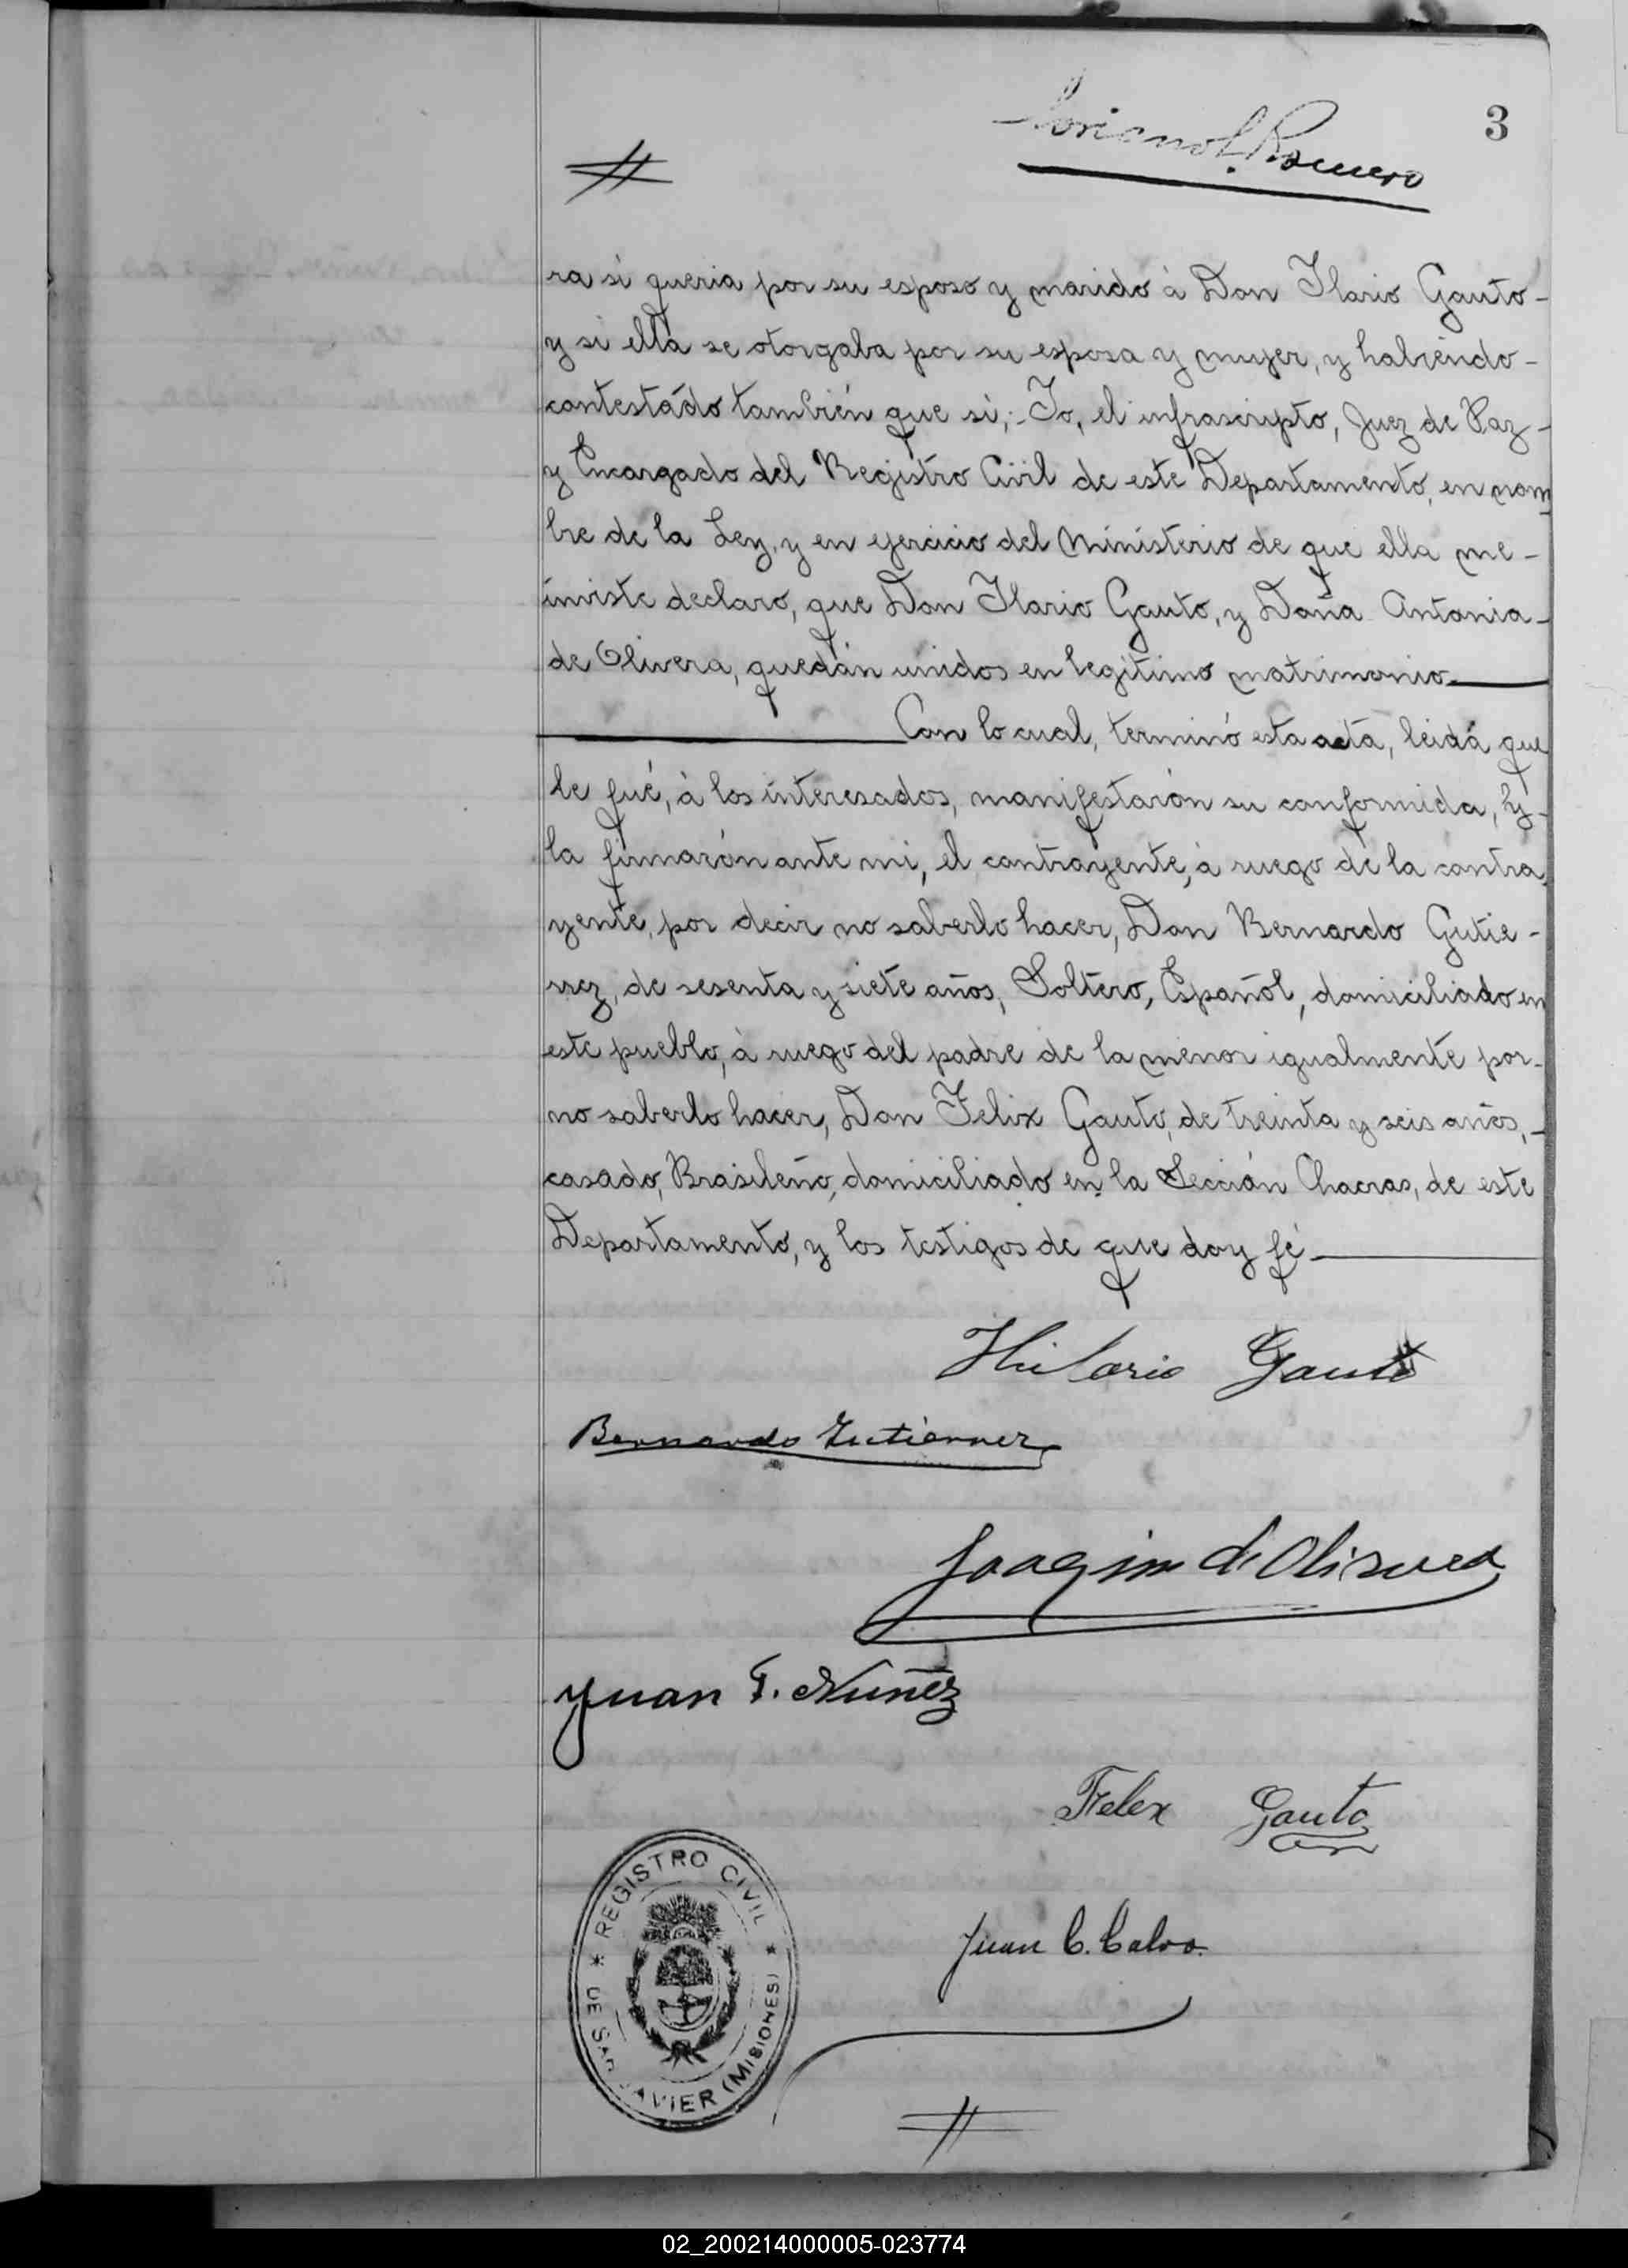 3
Romero
ra si queria por su esposo y marido à Don Ilario Gauto-
y si ella se otorgaba por su esposa y mujer, y habiéndo-
contestádo también que si;- Yo, el infrascripto, Juez de Paz-
y Encargado del Registro Civil de este Departamento, en nom
bre de la Ley, y en ejercicio del Ministerio de que ella me-
inviste declaro, que Don Ilario Gauto, y Doña Antonia-
de Olivera, quedán unidos en legítimo matrimonio.
Con lo cual, terminó esta acta, leidá que
le fué, à los interesados, manifestarón su conformida, y-
la firmarón ante mi, el contrayente, à ruego de la contra
yente, por decir no saberlo hacer, Don Bernardo Gutie-
rrez, de sesenta y siete años, Soltero, Español, domiciliado en
este pueblo, à ruego del padre de la menor igualmente por-
no saberlo hacer, Don Felix Gauto, de treinta y seis años,-
casado, Brasileño, domiciliado en la Sección Chacras, de este
Departamento, y los testigos de que doy fé
Hilario Gauto
Bernardo Gutierrez
Joaqim de Olivera
Juan T. Nuñez
Felex Gauto
Juan C. Calvo.
REGISTRO CIVIL
DE SAN JAVIER (MISIONES)
02_200214000005-023774